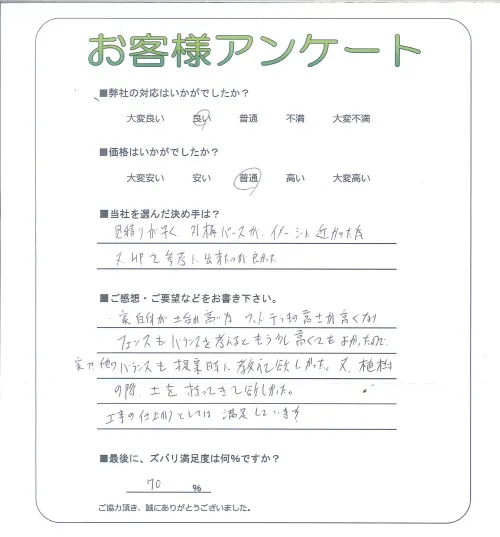 お客様アンケート
■弊社の対応はいかがでしたか？
大変良い 良い 普通 不満 大変不満
■価格はいかがでしたか？
大変安い 安い 普通 高い 大変高い
■当社を選んだ決め手は？
見積りが早く 外構パースが、イメージに近かった為
又、HPを参考に出来たのが良かった
■ご感想・ご要望などをお書き下さい。
・家自体が土台が高い為 ウッドデッキの高さが高くなり
フェンスもバランスを考えるともう少し高くてもよかったので、
他のバランスも提案時に教えて欲しかった。又、植樹
の際、土を持ってきて欲しかった。
工事の仕上がりとしては 満足しています
■最後に、ズバリ満足度は何%ですか？
70 %
ご協力頂き、誠にありがとうございました。